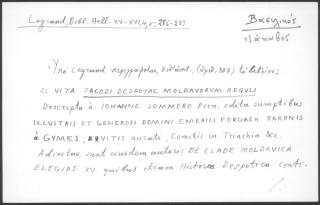 Legrand, Bibl. Hell. XV-XVI, 4, σ. 286-287.
Βασιλικός
Ἰάκωβος
Ὑπὸ Legrand περιγράφεται, (ἀριθ. 807) τὸ βιβλίον:
« VITA JACOBI DESPOTAE MOLDAVORUM REGULI
Descripta à IOHANNE SOMMERO Pirn. edita sumptibus
ILLUSTRIS ET GENEROSI DOMINI EMERICI FORGACH BARONIS
à GYMES, EQVITIS aurati, Comitis in Trinchin &c.
Adiectae sunt eiusdem autoris DE CLADE MOLDAVICA
ELEGIAE XV quibus etiam Historia Despotica conti-
./.